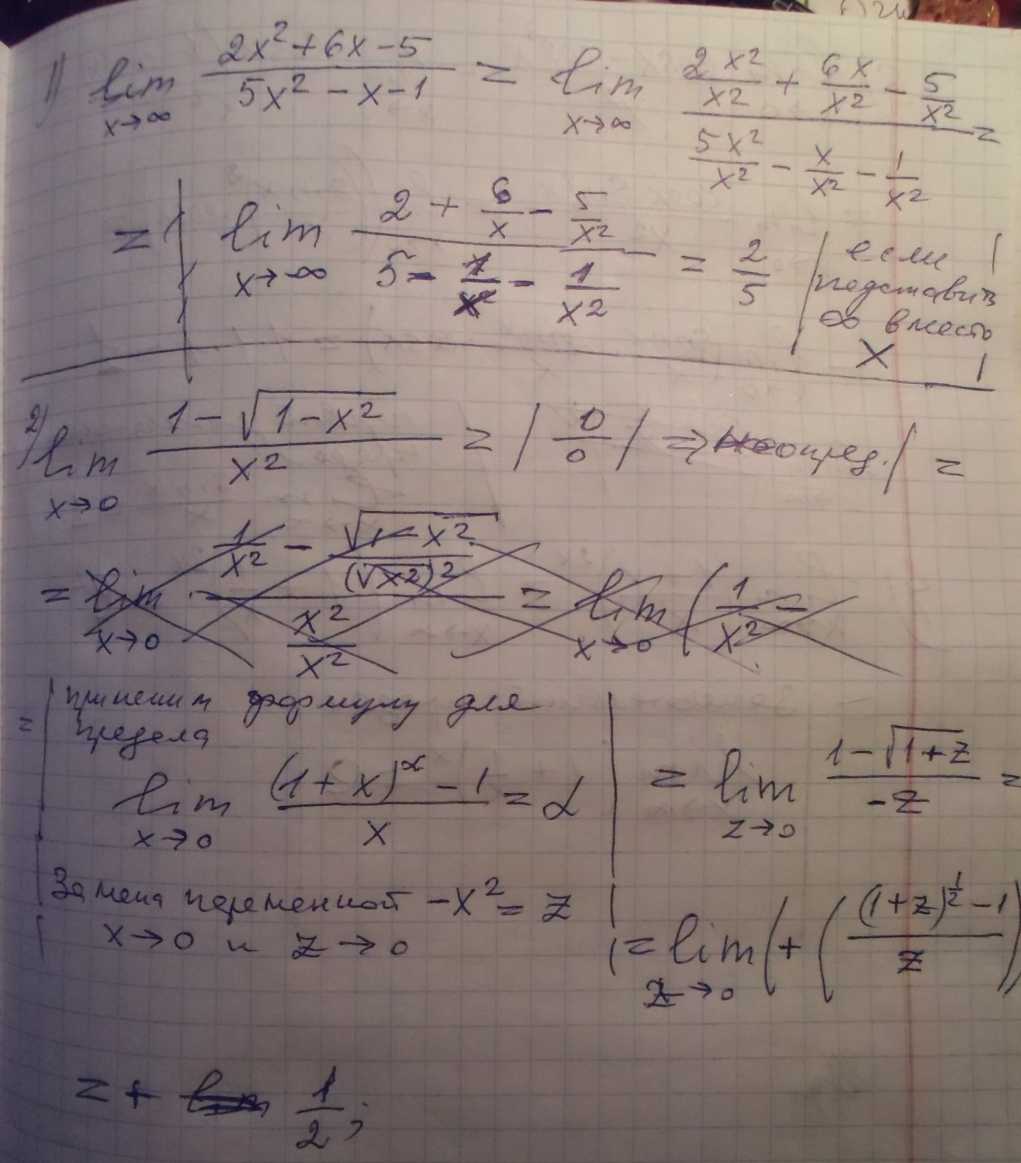 1) lim x→∞ (2x² + 6x − 5)/(5x² − x − 1) = lim x→∞ (2x²/x² + 6x/x² − 5/x²)/(5x²/x² − x/x² − 1/x²) =
= | lim x→∞ (2 + 6/x − 5/x²)/(5 − 1/x − 1/x²) = 2/5 | если подставить ∞ вместо x |
2) lim x→0 (1 − √(1 − x²))/x² = | 0/0 | ⇒ неопред. | =
= lim x→0 (1/x² − √(1 − x²)/(√x²)²)/(x²/x²) = lim x→0 (1/x² −
= | применим формулу для
предела
lim x→0 ((1 + x)^α − 1)/x = α | = lim z→0 (1 − √(1 + z))/(−z) =
Замена переменной −x² = z
x→0 и z→0 | = lim z→0 (+ (((1 + z)^(1/2) − 1)/z)
= + 1/2;